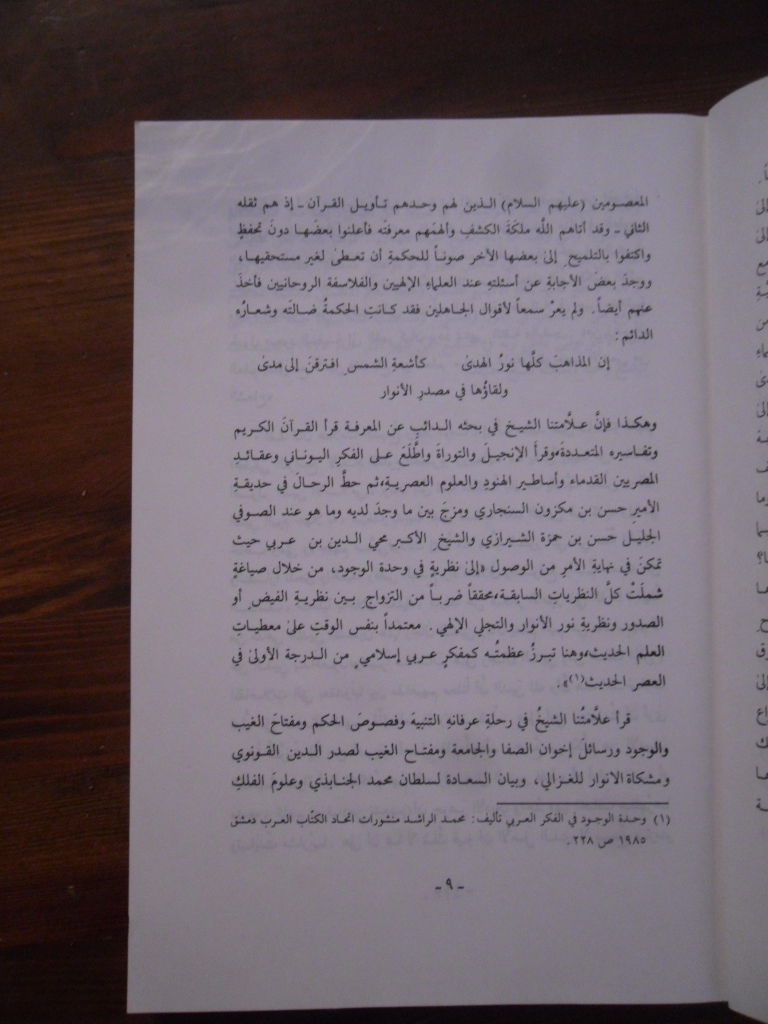 المعصومين (عليهم السلام) الذين لهم وحدهم تأويل القرآن ـ إذ هم ثقله
الثاني ـ وقد أتاهم اللَّه ملكةَ الكشفِ وألهمَهم معرفتَه فأعلنوا بعضَها دونَ تحفظٍ
واكتفوا بالتلميحِ إلىٰ بعضها الآخر صوناً للحكمةِ أن تعطىٰ لغير مستحقيها،
ووجدَ بعضَ الأجابةِ عن أسئلتهِ عند العلماءِ الإلهيين والفلاسفة الروحانيين فأخذَ
عنهم أيضاً. ولم يعرْ سمعاً لأقوال الجاهلين فقد كانتِ الحكمةُ ضالتَه وشعارُه
الدائم:
إن المذاهبَ كلَّها نورُ الهدىٰ كأشعةِ الشمسِ افترقنَ إلى مدىٰ
ولقاؤُها في مصدرِ الأنوار
وهكذا فإنَّ علَّامتنا الشيخَ في بحثه الدائبِ عن المعرفة قرأ القرآنَ الكريم
وتفاسيره المتعددةَ،وقرأَ الإنجيلَ والتوراةَ واطَّلَعَ على الفكرِ اليوناني وعقائدِ
المصريين القدماء وأساطيرِ الهنودِ والعلوم العصريةِ،ثم حطَّ الرحالَ في حديقةِ
الأميرِ حسن بن مكزون السنجاري ومزجَ بين ما وجدَ لديه وما هو عند الصوفي
الجليل حسن بن حمزة الشيرازي والشيخِ الأكبر محي الدين بن عربي حيث
تمكنَ في نهايةِ الأمرِ من الوصول «إلىٰ نظريةٍ في وحدة الوجود، من خلال صياغةٍ
شملَتْ كلَّ النظرياتِ السابقة،محققاً ضرباً من التزواجِ بين نظريةِ الفيضِ أو
الصدور ونظريةِ نور الأنوار والتجلي الإلهي. معتمداً بنفس الوقتِ علىٰ معطياتِ
العلم الحديث،وهنا تبرزُ عظمتُه كمفكرٍ عربي إسلاميٍ من الدرجة الأولىٰ في
العصر الحديث(١)».
قرأ علَّامتُنا الشيخُ في رحلةِ عرفانهِ التنبيهَ وفصوصَ الحكم ومفتاحَ الغيب
والوجود ورسائلَ إخوان الصفا والجامعة ومفتاح الغيب لصدر الدين القونوي
ومشكاة الانوار للغزالي، وبيان السعادة لسلطان محمد الجنابذي وعلومَ الفلكِ
(١) وحدة الوجود في الفكر العربي تأليف: محمد الراشد منشورات اتحاد الكتّاب العرب دمشق
١٩٨٥ ص ٢٢٨.
ـ ٩ ـ